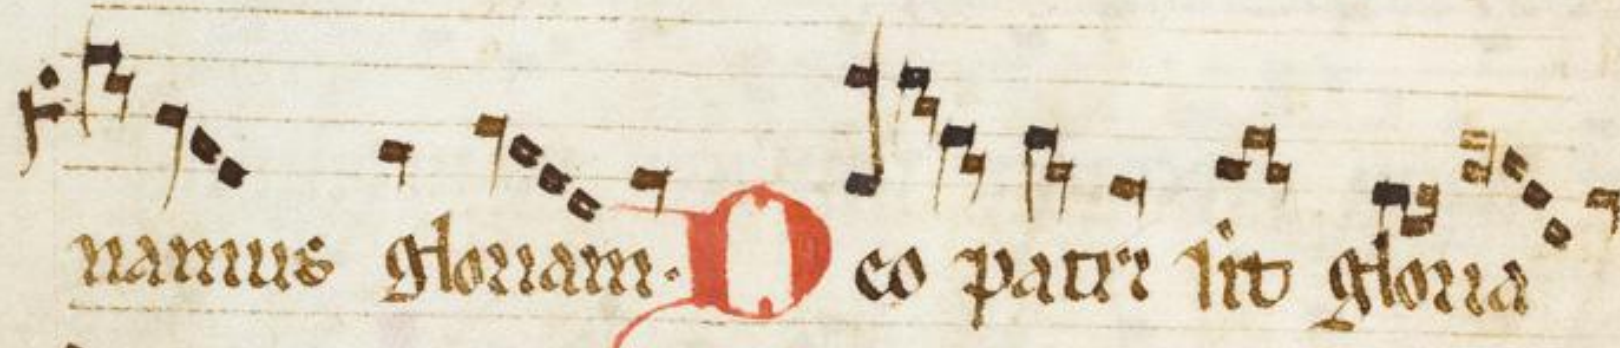 namus gloriam. Deo patri sit gloria